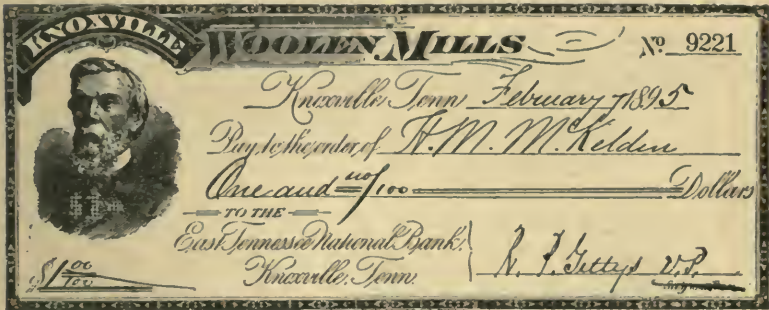 KNOXVILLE WOOLEN MILLS Nº 9221
Knoxville, Tenn February 7 1895
Pay to the order of H. M. McKelden
One and no/100 Dollars
TO THE
East Tennessee National Bank,
Knoxville, Tenn.
$1 00/100 Gettys V.P.